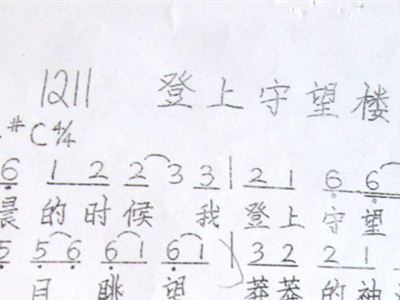 1211 登上守望楼
#C 4/4
6 1 2 2 3 3 | 2 1 6 6
晨的时候 我登上守望
5 5 6 6 1 6 1 | 3 2 2 1
目眺望 莽莽的神